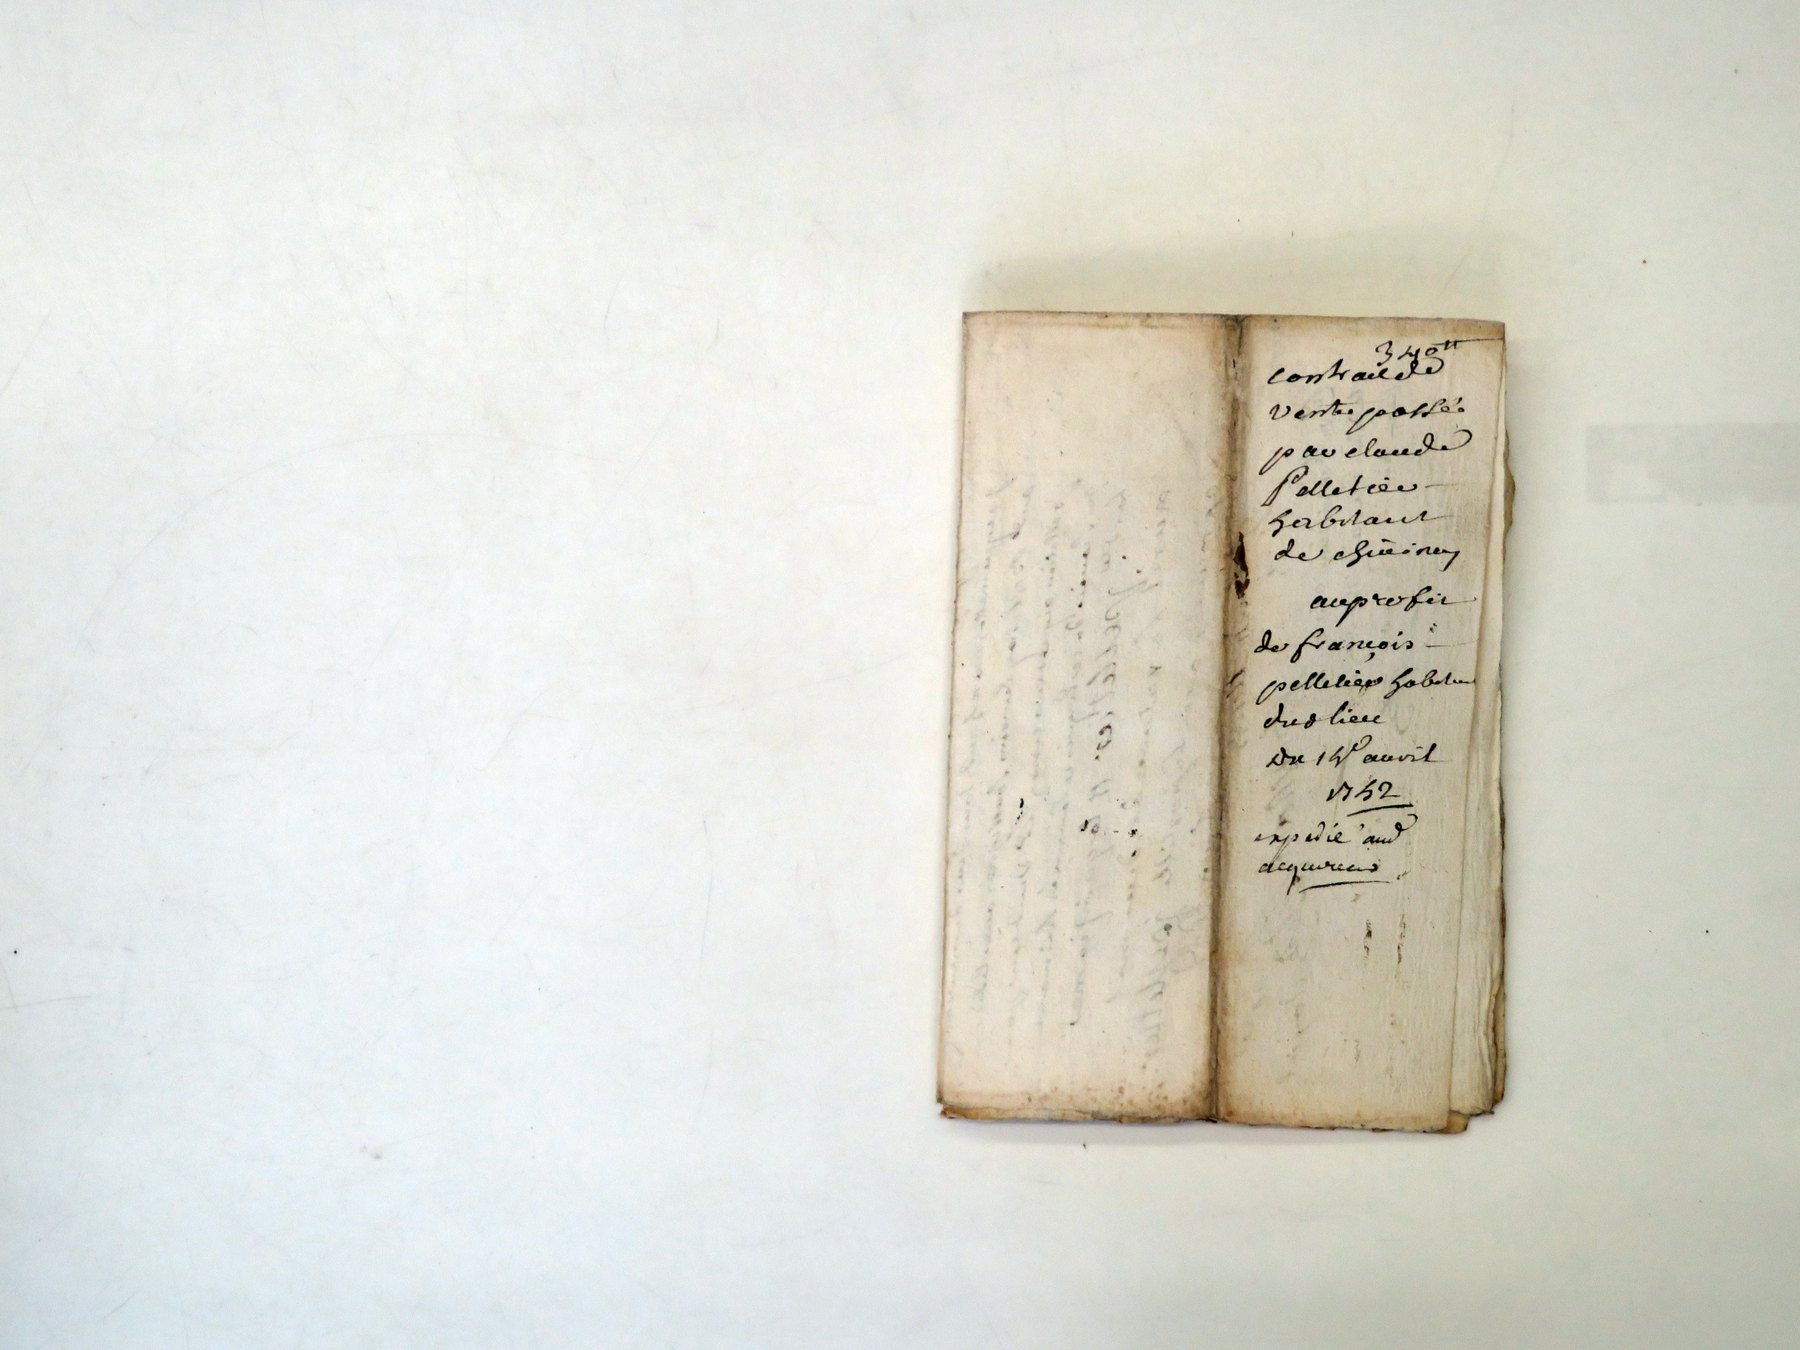 340tt
contract de
vente passée
par claude
Pelletier
habitant
de
au profit
de françois
pelletier habitan
dud lieu
du 14e auril
1742
expedié aud
acquereur